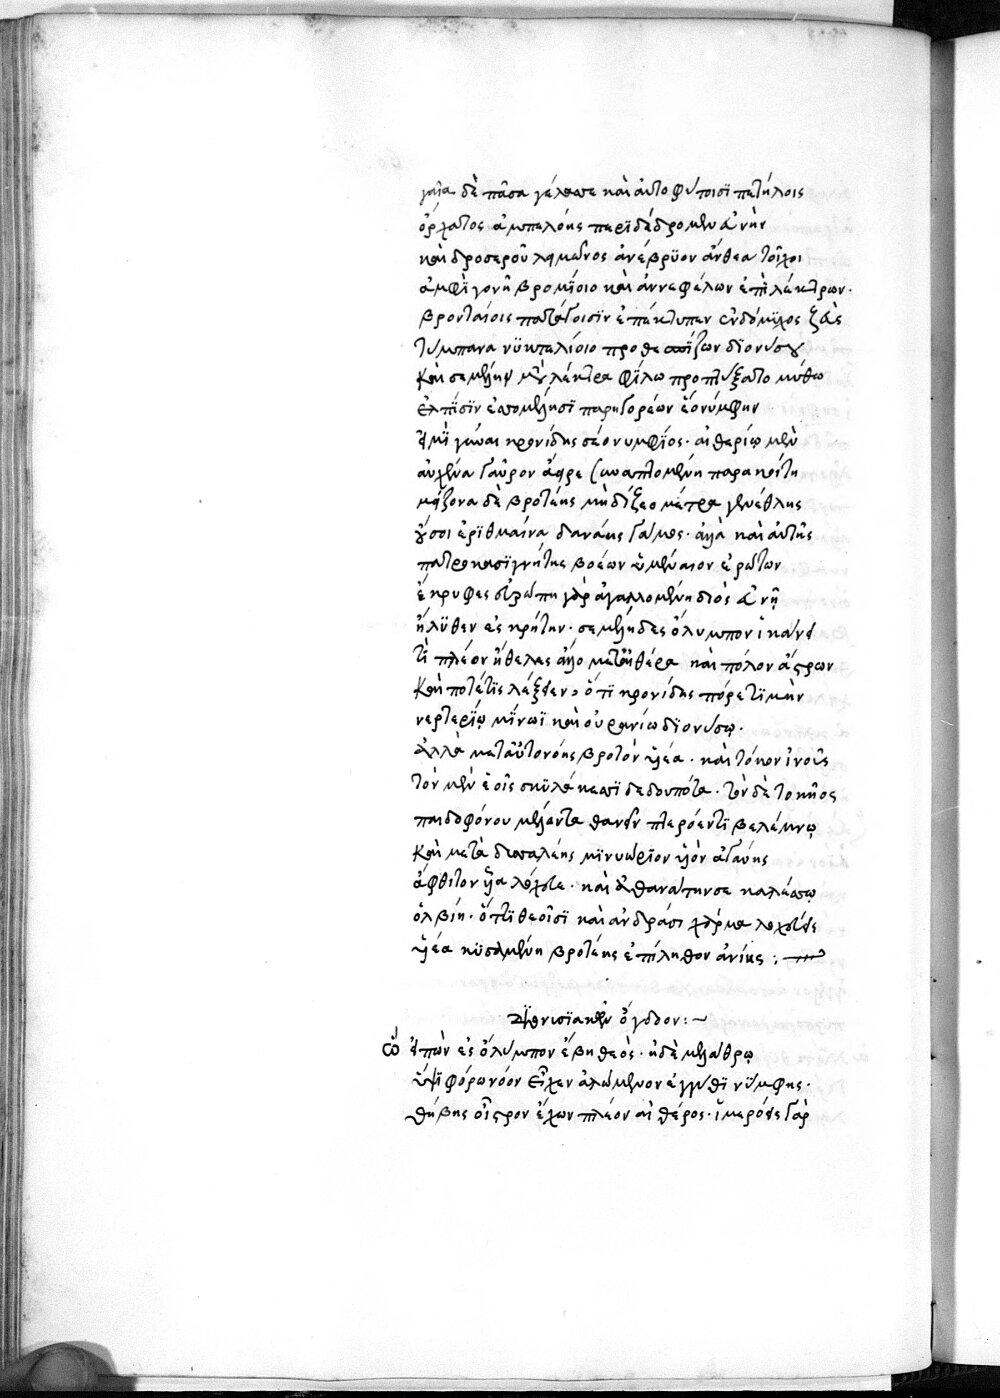 γαῖα δὲ πᾶσα γέλασσε καὶ αὐτοφύτοισϊ πετήλοις
ὄρχατος ἀμπελόεις περιδέδρομεν εὐνὴν
καὶ δροσεροῦ λειμῶνος ἀνέβρϋον ἄνθεα τοῖχοι
ἀμφὶ γονῆ βρομίοιο καὶ ἀννεφέλων ἐπὶ λέκτρων.
βρονταίοις πατάγοισϊν ἐπέκτυπεν ἐνδόμϋχος ζεὺς
τύμπανα νϋκτελίοιο προθεσπίζων διονύσου
καὶ σεμέλην μετὰ λέκτρα φίλω προπτύξατο μύθω
ἐλπίσϊν ἐσσομένησϊ παρηγορέων ἑὸν νύμφην
ἐμὴ γύναι κρονίδης σέο νυμφίος. αἰθερίῳ μὲν
αὐχένα γαῦρον ἄειρε συναπτομένη παρακοίτη
μείζονα δὲ βροτέης μὴ δίζεο μέτρα γενέθλης
οὔ σοι ἐρϊδμαίνει δανάης γάμος. ἀλλὰ καὶ αὐτῆς
πατροκασϊγνήτης βοέων ὑμέναιον ἐρώτων
ἔκρυφες εὐρώπη γὰρ ἀγαλλομένη διὸς εὐνῇ
ἤλϋθεν ἐς κρήτην. σεμέλη δ' ἐς ὄλυμπον ἱκάνει
τί πλέον ἤθελες ἄλλο μετ' αἰθέρα καὶ πόλον ἄστρων
καὶ ποτέ τις λέξειεν ὅτι κρονίδης πόρε τϊμὴν
νερτερίῳ μίνωϊ καὶ οὐρανίω διονύσῳ.
ἀλλὰ μετ' αὐτονόης βροτὸν υἱέα. καὶ τόκον ἰνοῦς
τὸν μὲν ἑοῖς σκυλάκεσσϊ δεδουπότα. τὸν δὲ τοκῆος
παιδοφόνου μέλλοντα θανεῖν πτερόεντι βελέμνῳ
καὶ μετὰ δυσπαλέης μϊνυώριον υἱὸν ἀγαύης
ἄφθιτον υἷα λόχευε. καὶ ἀθανάτην σε καλέσσω
ὀλβίη. ὅττι θεοῖσϊ καὶ ἀνδράσι χάρμα λοχεύσεις
υἱέα κϋσαμένη βροτέης ἐπίληθον ἀνίης:
Διονυσϊακῶν ὄγδοον:~
Ὣς εἰπὼν ἐς ὄλυμπον ἔβη θεὸς. ἠδὲ μελάθρῳ
ὑψιφόρω νόον εἶχεν ἀλώμενον ἐγγύθϊ νύμφης.
θήβης οἶστρον ἔχων πλέον αἰθέρος. ἱμερόεις γὰρ